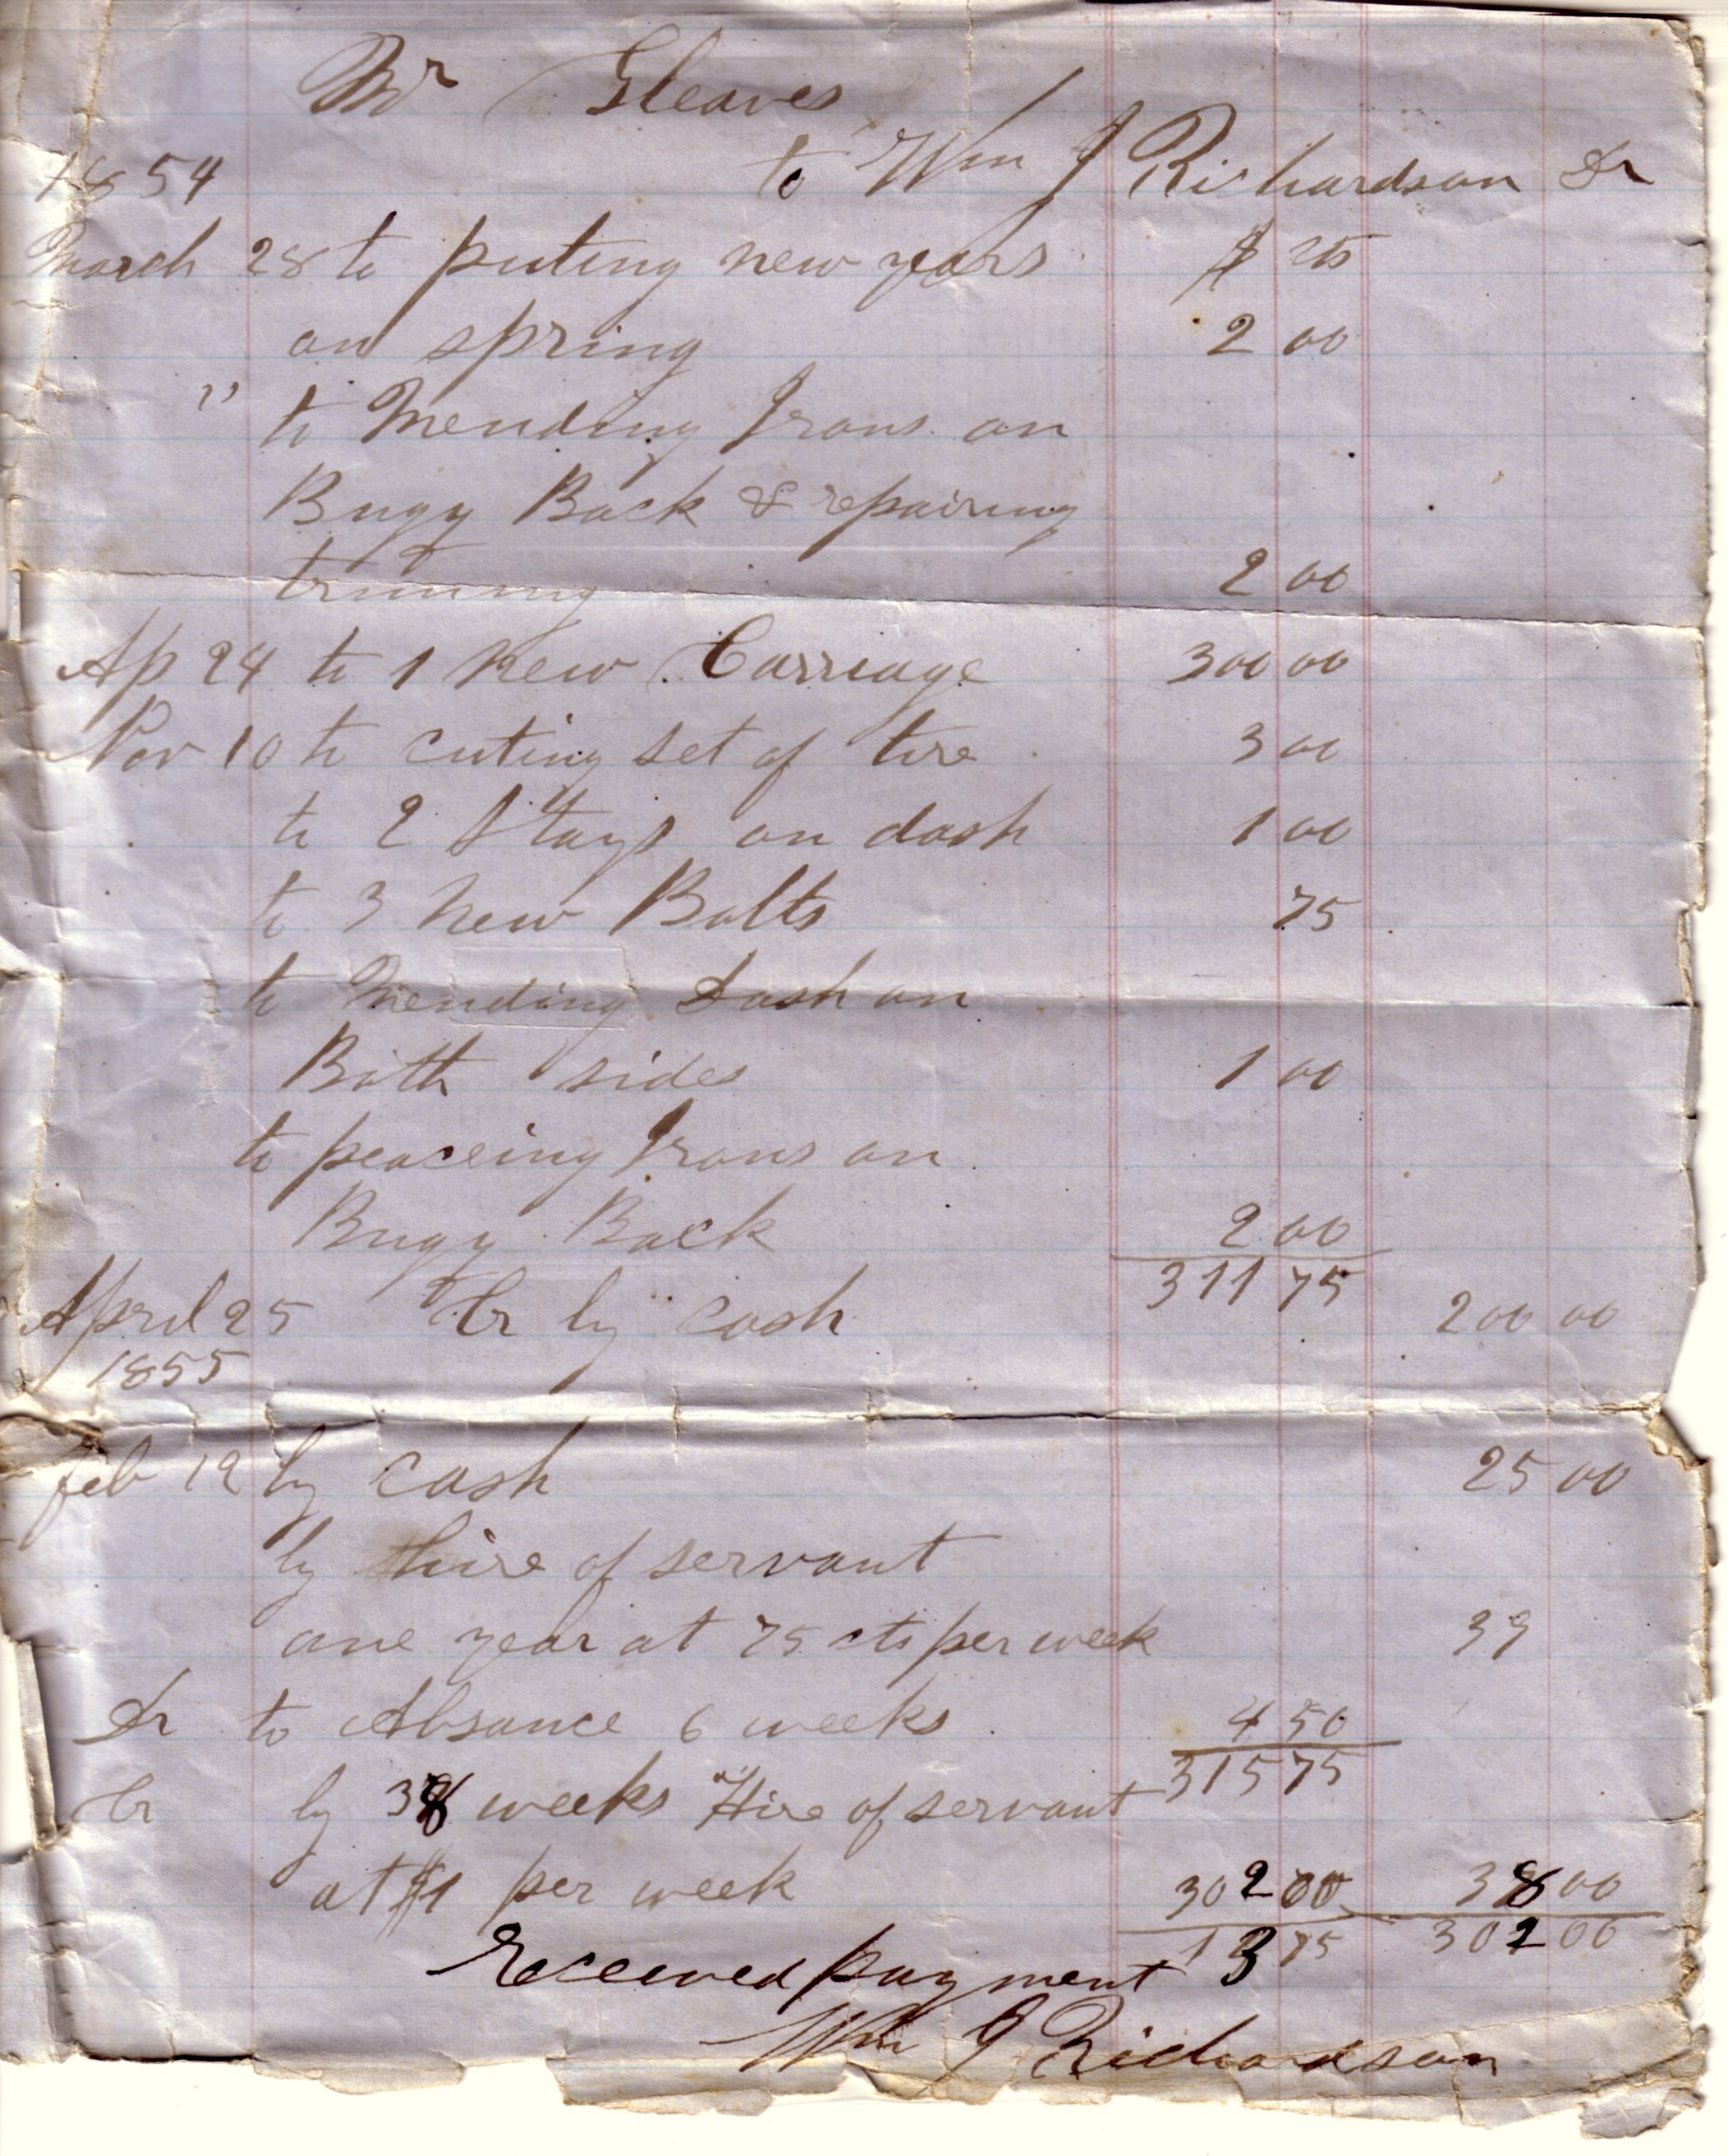 Mr Gleaves
1854 to Wm J Richardson Dr
March 28 to puting new years $ cts
on spring 2 00
" to Mending Irons on
Bugy Back & repairing
triming 2 00
Ap 24 to 1 New Carriage 300 00
Nov 10 to cuting set of tire 3 00
to 2 Stays on dash 1 00
to 3 New Bolts 75
to Mending Dash on
Both sides 1 00
to peaceing Irons on
Bugy Back 2 00
311 75
April 25 Cr by cash 200 00
1855
Feb 19 by cash 25 00
by hire of servant
one year at 75 cts per week 39
Dr to Absance 6 weeks 4 50
315 75
Cr by 38 weeks Hire of servant
at $1 per week 302 00 38 00
13 75 302 00
Received payment
Wm J Richardson